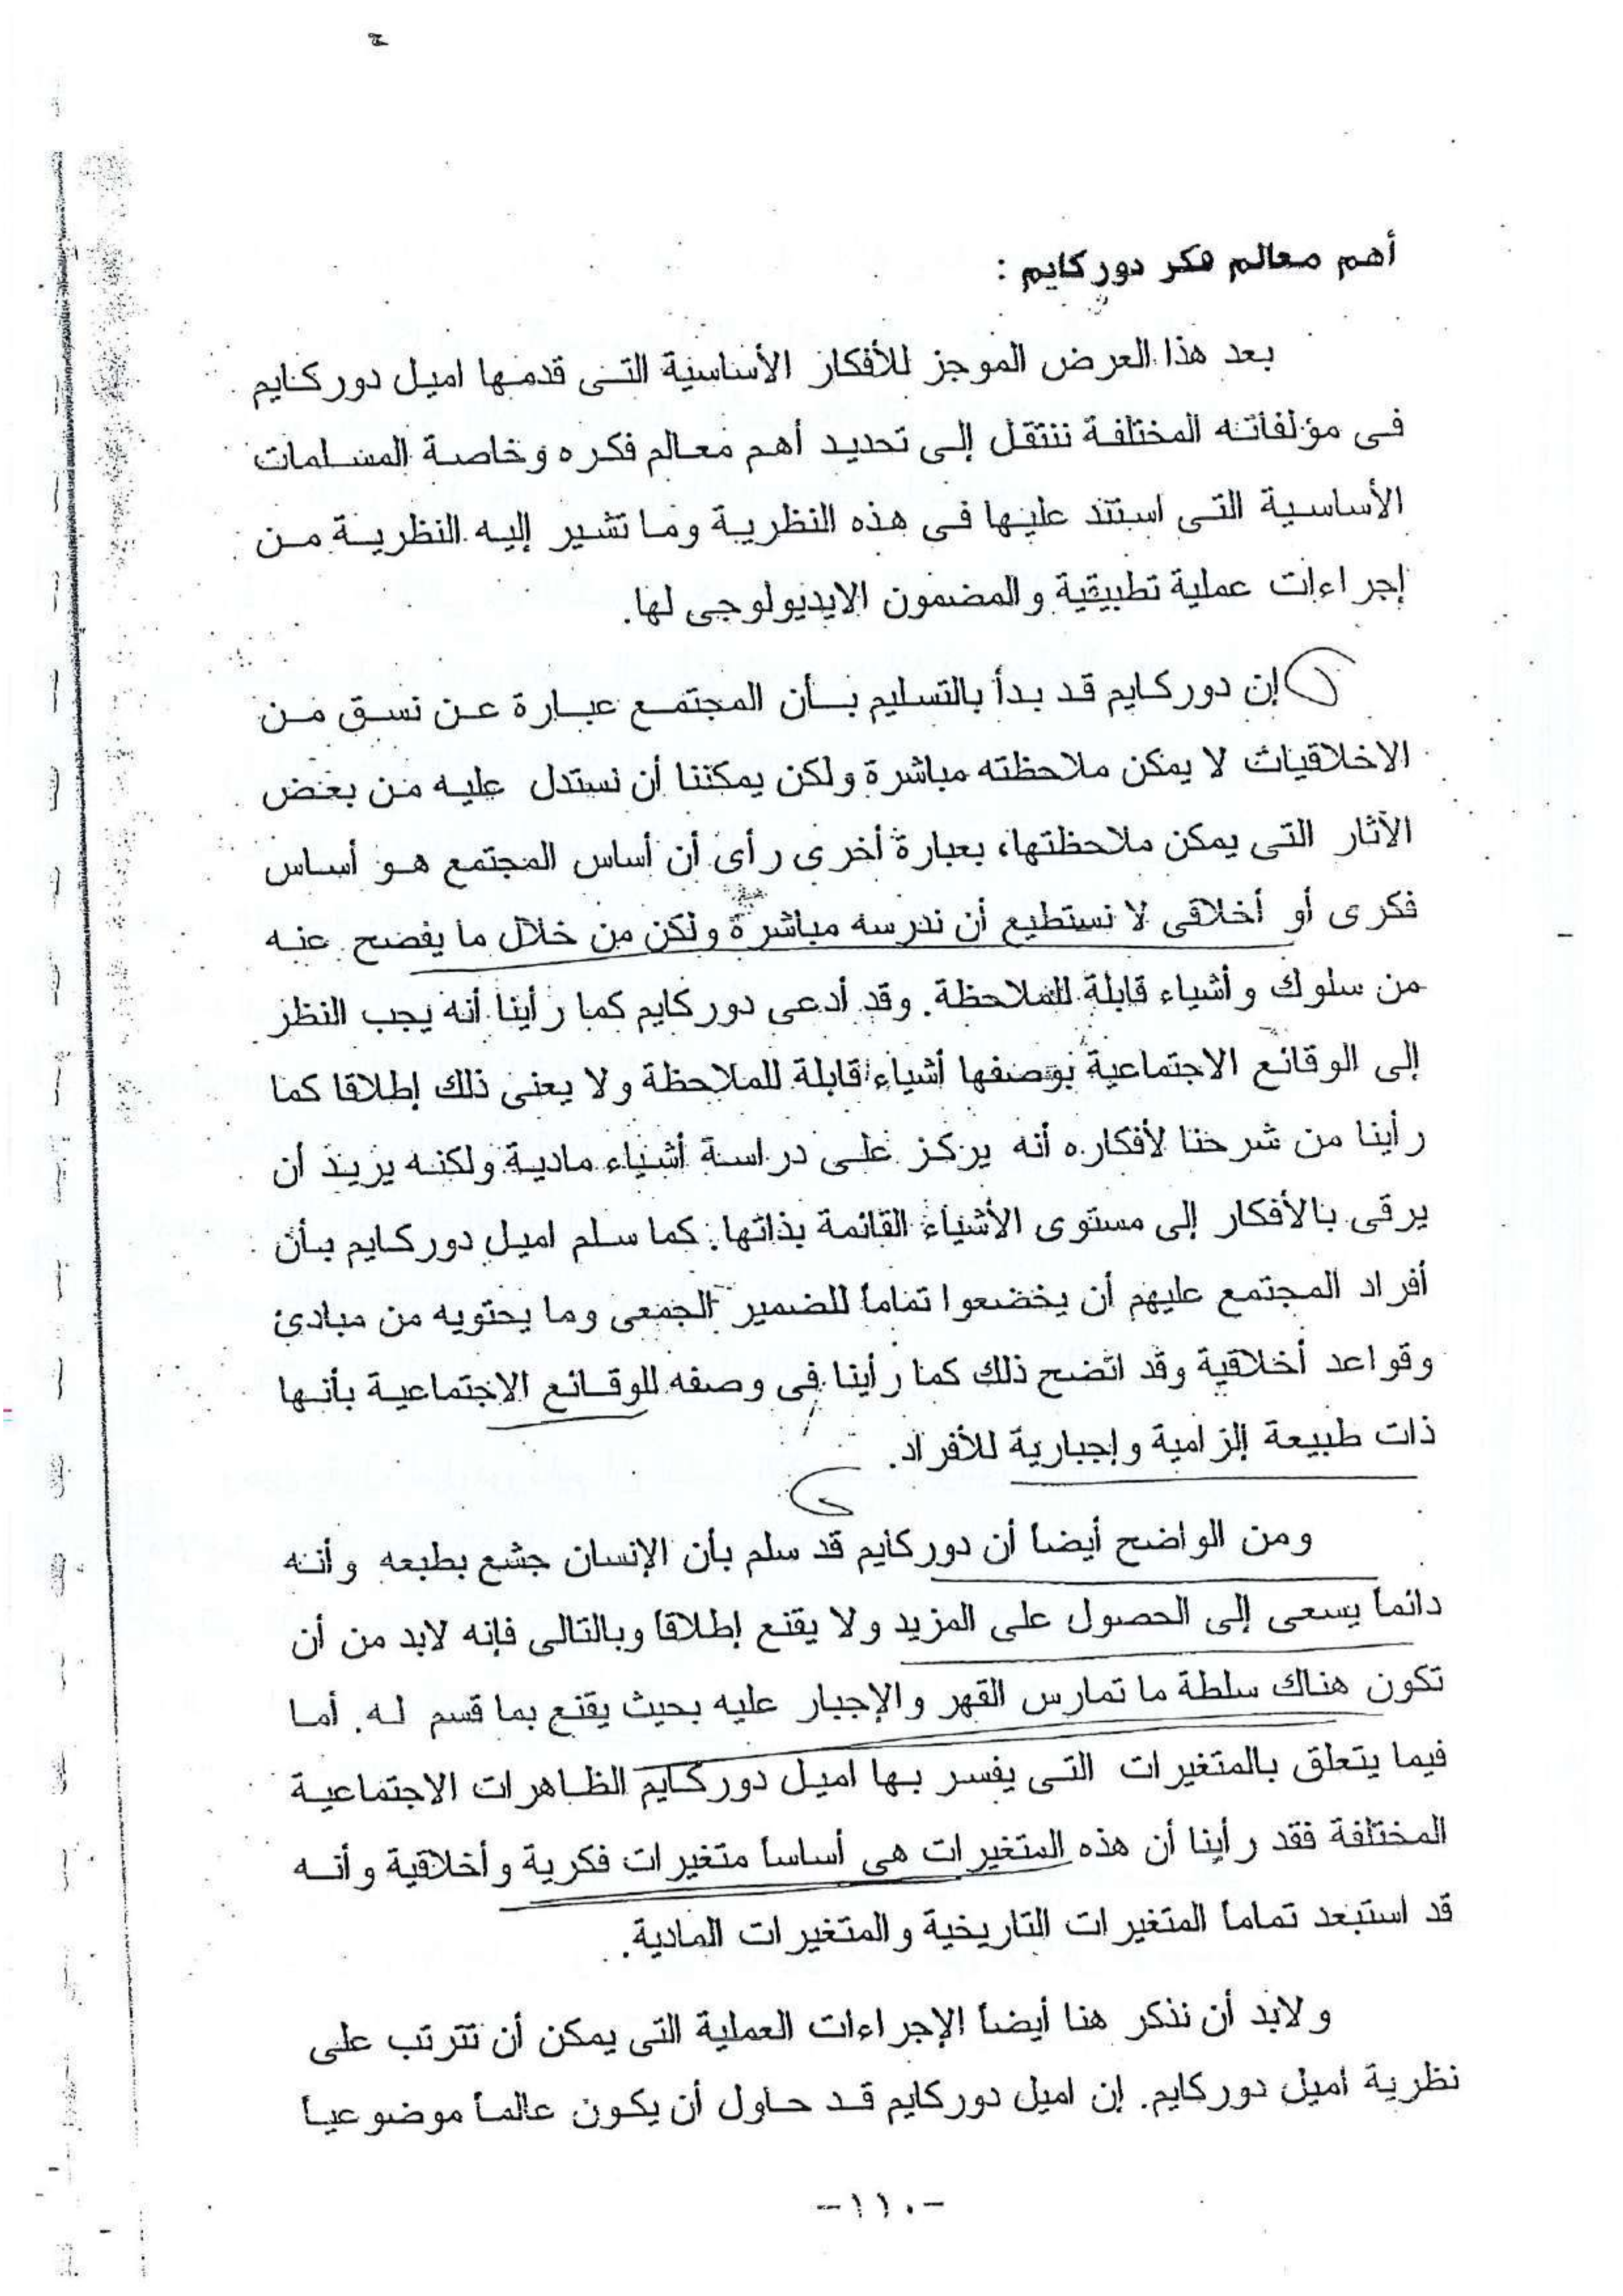 أهم معالم فكر دوركايم :
بعد هذا العرض الموجز للأفكار الأساسية التى قدمها اميل دوركايم
فى مؤلفاته المختلفة ننتقل إلى تحديد أهم معالم فكره وخاصة المسلمات
الأساسية التى استند عليها فى هذه النظرية وما تشير إليه النظرية من
إجراءات عملية تطبيقية والمضمون الايديولوجى لها.
إن دوركايم قد بدأ بالتسليم بأن المجتمع عبارة عن نسق من
الاخلاقيات لا يمكن ملاحظته مباشرة ولكن يمكننا أن نستدل عليه من بعض
الآثار التى يمكن ملاحظتها، بعبارة أخرى رأى أن أساس المجتمع هو أساس
فكرى أو أخلاقى لا نستطيع أن ندرسه مباشرة ولكن من خلال ما يفضح عنه
من سلوك وأشياء قابلة للملاحظة. وقد أدعى دوركايم كما رأينا أنه يجب النظر
إلى الوقائع الاجتماعية بوصفها أشياء قابلة للملاحظة ولا يعنى ذلك إطلاقا كما
رأينا من شرحنا لأفكاره أنه يركز على دراسة أشياء مادية ولكنه يريد أن
يرقى بالأفكار إلى مستوى الأشياء القائمة بذاتها. كما سلم اميل دوركايم بأن
أفراد المجتمع عليهم أن يخضعوا تماماً للضمير الجمعى وما يحتويه من مبادئ
وقواعد أخلاقية وقد اتضح ذلك كما رأينا فى وصفه للوقائع الاجتماعية بأنها
ذات طبيعة إلزامية وإجبارية للأفراد.
ومن الواضح أيضاً أن دوركايم قد سلم بأن الإنسان جشع بطبعه وأنه
دائماً يسعى إلى الحصول على المزيد ولا يقنع إطلاقاً وبالتالى فإنه لابد من أن
تكون هناك سلطة ما تمارس القهر والإجبار عليه بحيث يقنع بما قسم له. أما
فيما يتعلق بالمتغيرات التى يفسر بها اميل دوركايم الظاهرات الاجتماعية
المختلفة فقد رأينا أن هذه المتغيرات هى أساساً متغيرات فكرية وأخلاقية وأنه
قد استبعد تماماً المتغيرات التاريخية والمتغيرات المادية.
ولابد أن نذكر هنا أيضاً الإجراءات العملية التى يمكن أن تترتب على
نظرية اميل دوركايم. إن اميل دوركايم قد حاول أن يكون عالماً موضوعياً
-١١٠-